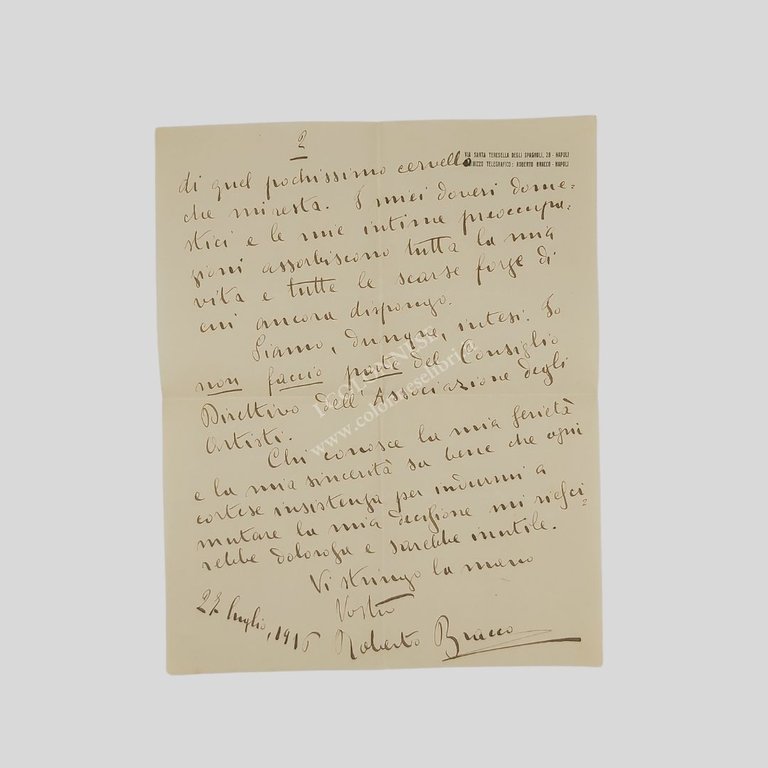 2
VIA SANTA TERESELLA DEGLI SPAGNOLI, 20 - NAPOLI
TELEGRAFICO: ROBERTO BRACCO - NAPOLI
di quel pochissimo cervello
che mi resta. I miei doveri dome=
stici e le mie intime preoccupa=
zioni assorbiscono tutta la mia
vita e tutte le scarse forze di
cui ancora dispongo.
Siamo, dunque, intesi. Io
non faccio parte del Consiglio
Direttivo dell'Associazione degli
Artisti.
Chi conosce la mia serietà
e la mia sincerità sa bene che ogni
cortese insistenza per indurmi a
mutare la mia decisione mi riesci=
rebbe dolorosa e sarebbe inutile.
Vi stringo la mano
Vostro
luglio, 1915
Roberto Bracco
www.colonneselibri.it